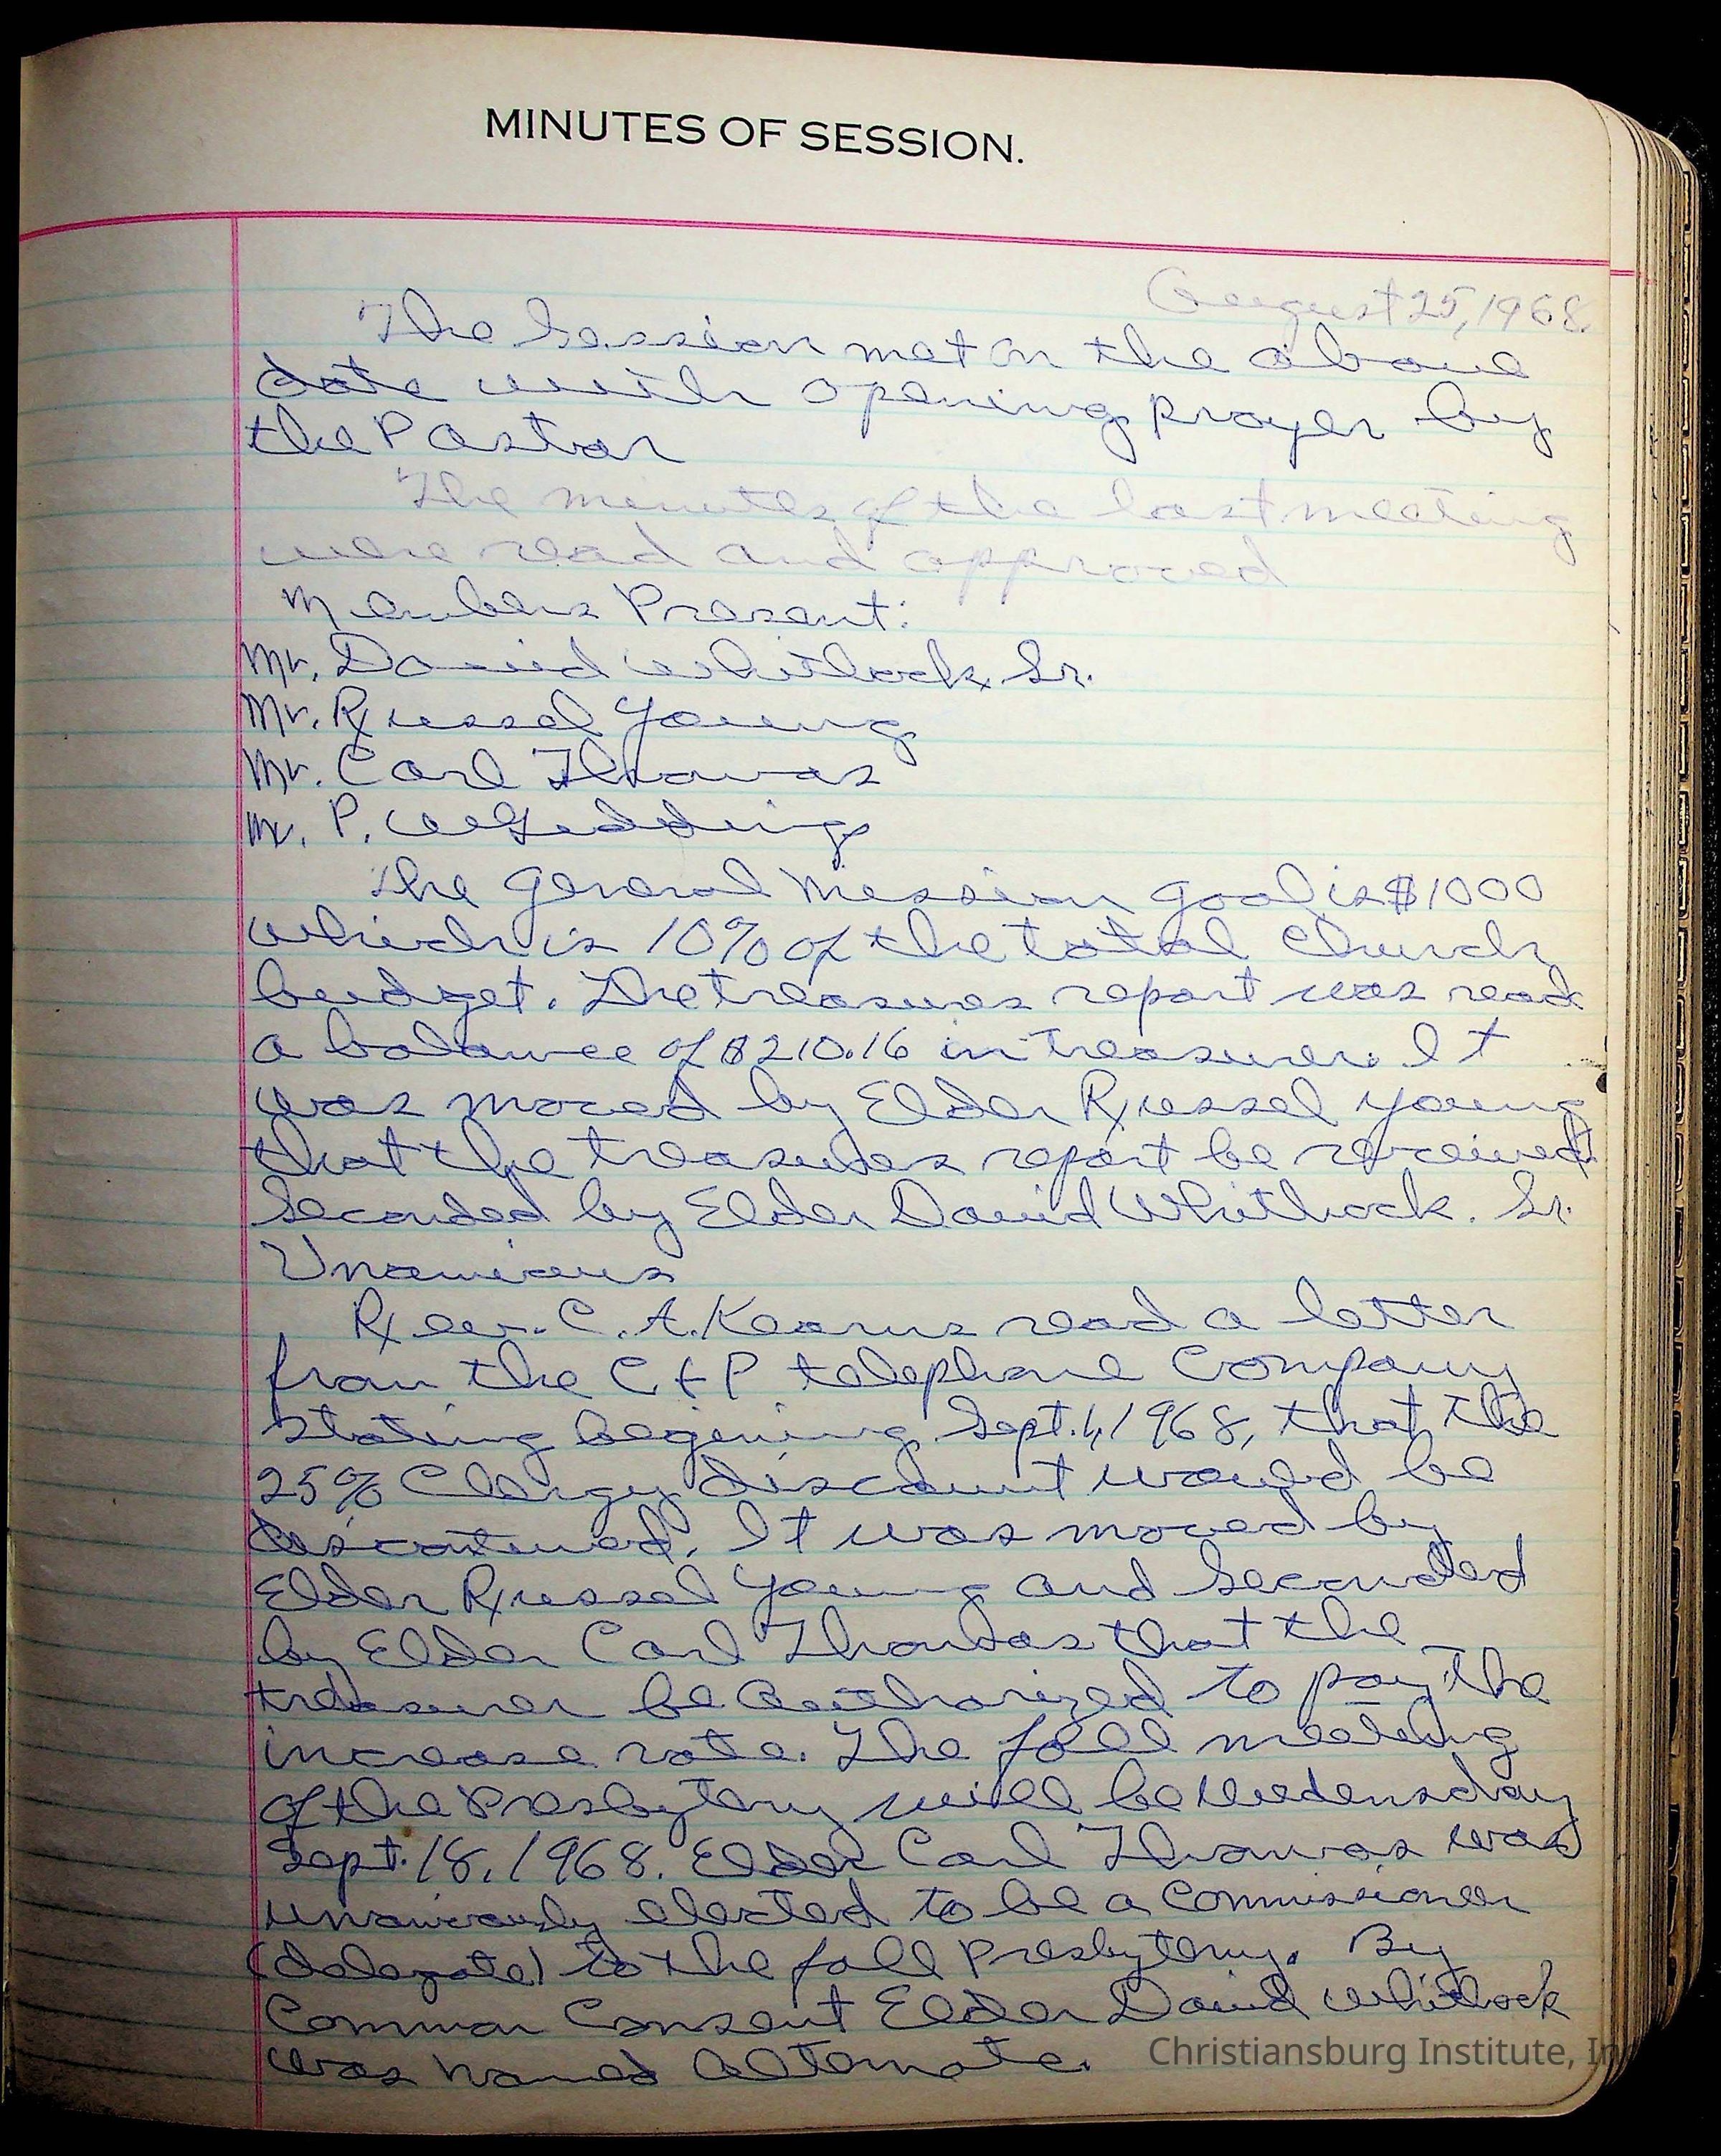 MINUTES OF SESSION.
August 25, 1968.
The Session met on the above
date with opening prayer by
the Pastor
The minutes of the last meeting
were read and approved
Members Present:
Mr. David Whitlock Sr.
Mr. Russel Young
Mr. Carl Thomas
Mr. P. W Giddings
The General Mission goal is $1000
which is 10% of the total Church
budget. The treasures report was read
a balance of $210.16 in treasurer. It
was moved by Elder Russel Young
that the treasures report be received
Seconded by Elder David Whitlock. Sr.
Unamious
Rev. C. A. Kearns read a letter
from the C & P telephone Company
stating begining Sept. 1, 1968, that the
25% Clergy discount would be
discontinued. It was moved by
Elder Russel Young and Seconded
by Elder Carl Thomas that the
treasurer be authorized to pay the
increase rate. The fall meeting
of the Presbytery will be Wedensday
Sept. 18, 1968. Elder Carl Thomas was
unamiously elected to be a Commissioner
(delegate) to the fall Presbytery. By
Common Consent Elder David Whitlock
was named Alternate.
Christiansburg Institute, In